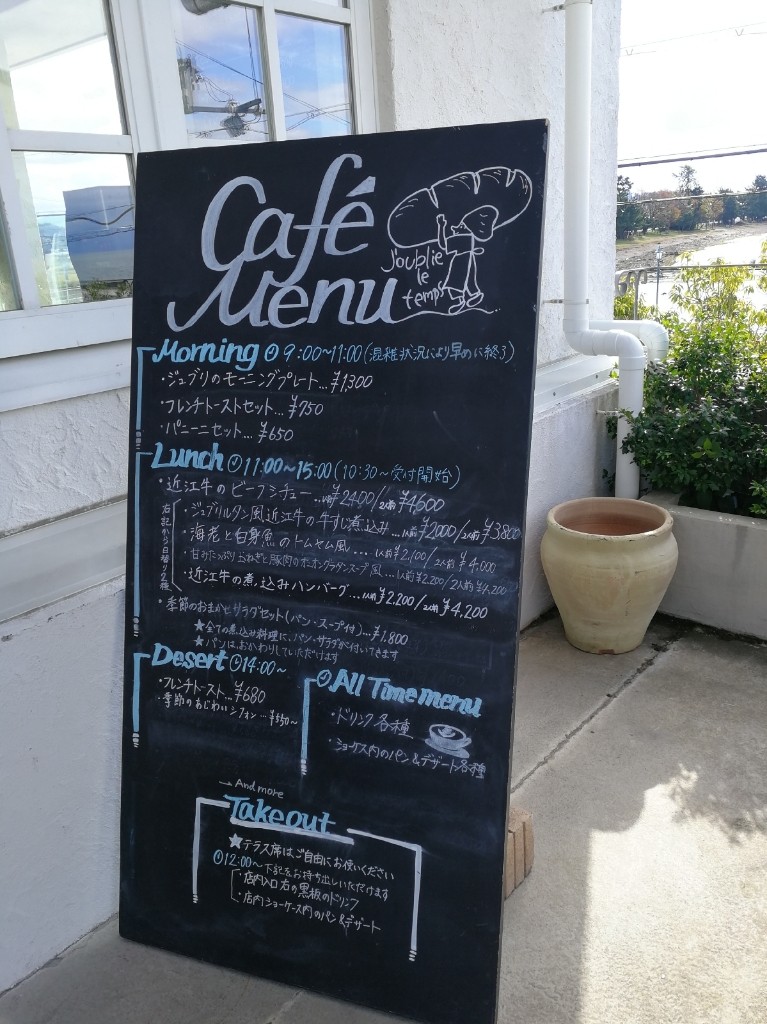 Café
Menu
J'oublie
le
temps
Morning 9:00~11:00(混雑状況により早めに終了)
・ジュブリのモーニングプレート...¥1,300
・フレンチトーストセット...¥750
・パニーニセット...¥650
Lunch 11:00~15:00(10:30~受付開始)
・近江牛のビーフシチュー...1人前¥2,400/2人前¥4,600
右記から日替り2種
・ジュブリルタン風近江牛の牛すじ煮込み...1人前¥2,000/2人前¥3,800
・海老と白身魚のトムヤム風...1人前¥2,100/2人前¥4,000
・甘みたっぷりおねぎと豚肉のオニオングラタンスープ風...1人前¥2,200/2人前¥4,200
・近江牛の煮込みハンバーグ...1人前¥2,200/2人前¥4,200
・季節のおまかせサラダセット(パン・スープ付)...¥1,800
★全ての煮込み料理に、パン・サラダが付いてきます
★パンはおかわりしていただけます
Desert 14:00~
・フレンチトースト...¥680
・季節のあじわいシフォン...¥550~
All Time menu
・ドリンク各種
・ショーケース内のパン&デザート各種
→And more
Take out
★テラス席はご自由にお使いください
12:00~下記をお持ち出しいただけます
・店内入口右の黒板のドリンク
・店内ショーケース内のパン&デザート